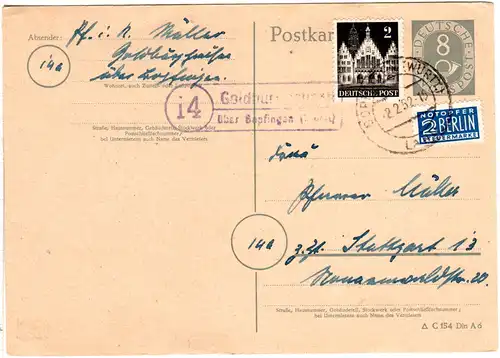 Absender:
Pf. i. R. Müller
Goldburghausen
über Bopfingen
14a
Wohnort, auch Zustell- oder Leitpostamt
Straße, Hausnummer, Gebäudeteil, Stockwerk oder
Postschließfachnummer;
bei Untermietern auch Name des Vermieters
Postkarte
2
DEUTSCHE POST
8
DEUTSCHE
POST
WÜRTT
-2.2.52
NOTOPFER
2 BERLIN
STEUERMARKE
14
Goldburghausen
über Bopfingen
Frau
Pfarrer Müller
14a
z. Zt. Stuttgart 13
Straße, Hausnummer, Gebäudeteil, Stockwerk oder Postschließfachnummer;
bei Untermietern auch Name des Vermieters
Δ C 154 Din A 6